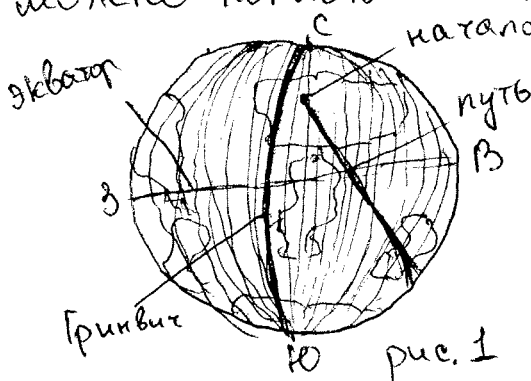 можно
С
начало
экватор
путь
З
В
Гринвич
Ю
рис. 1